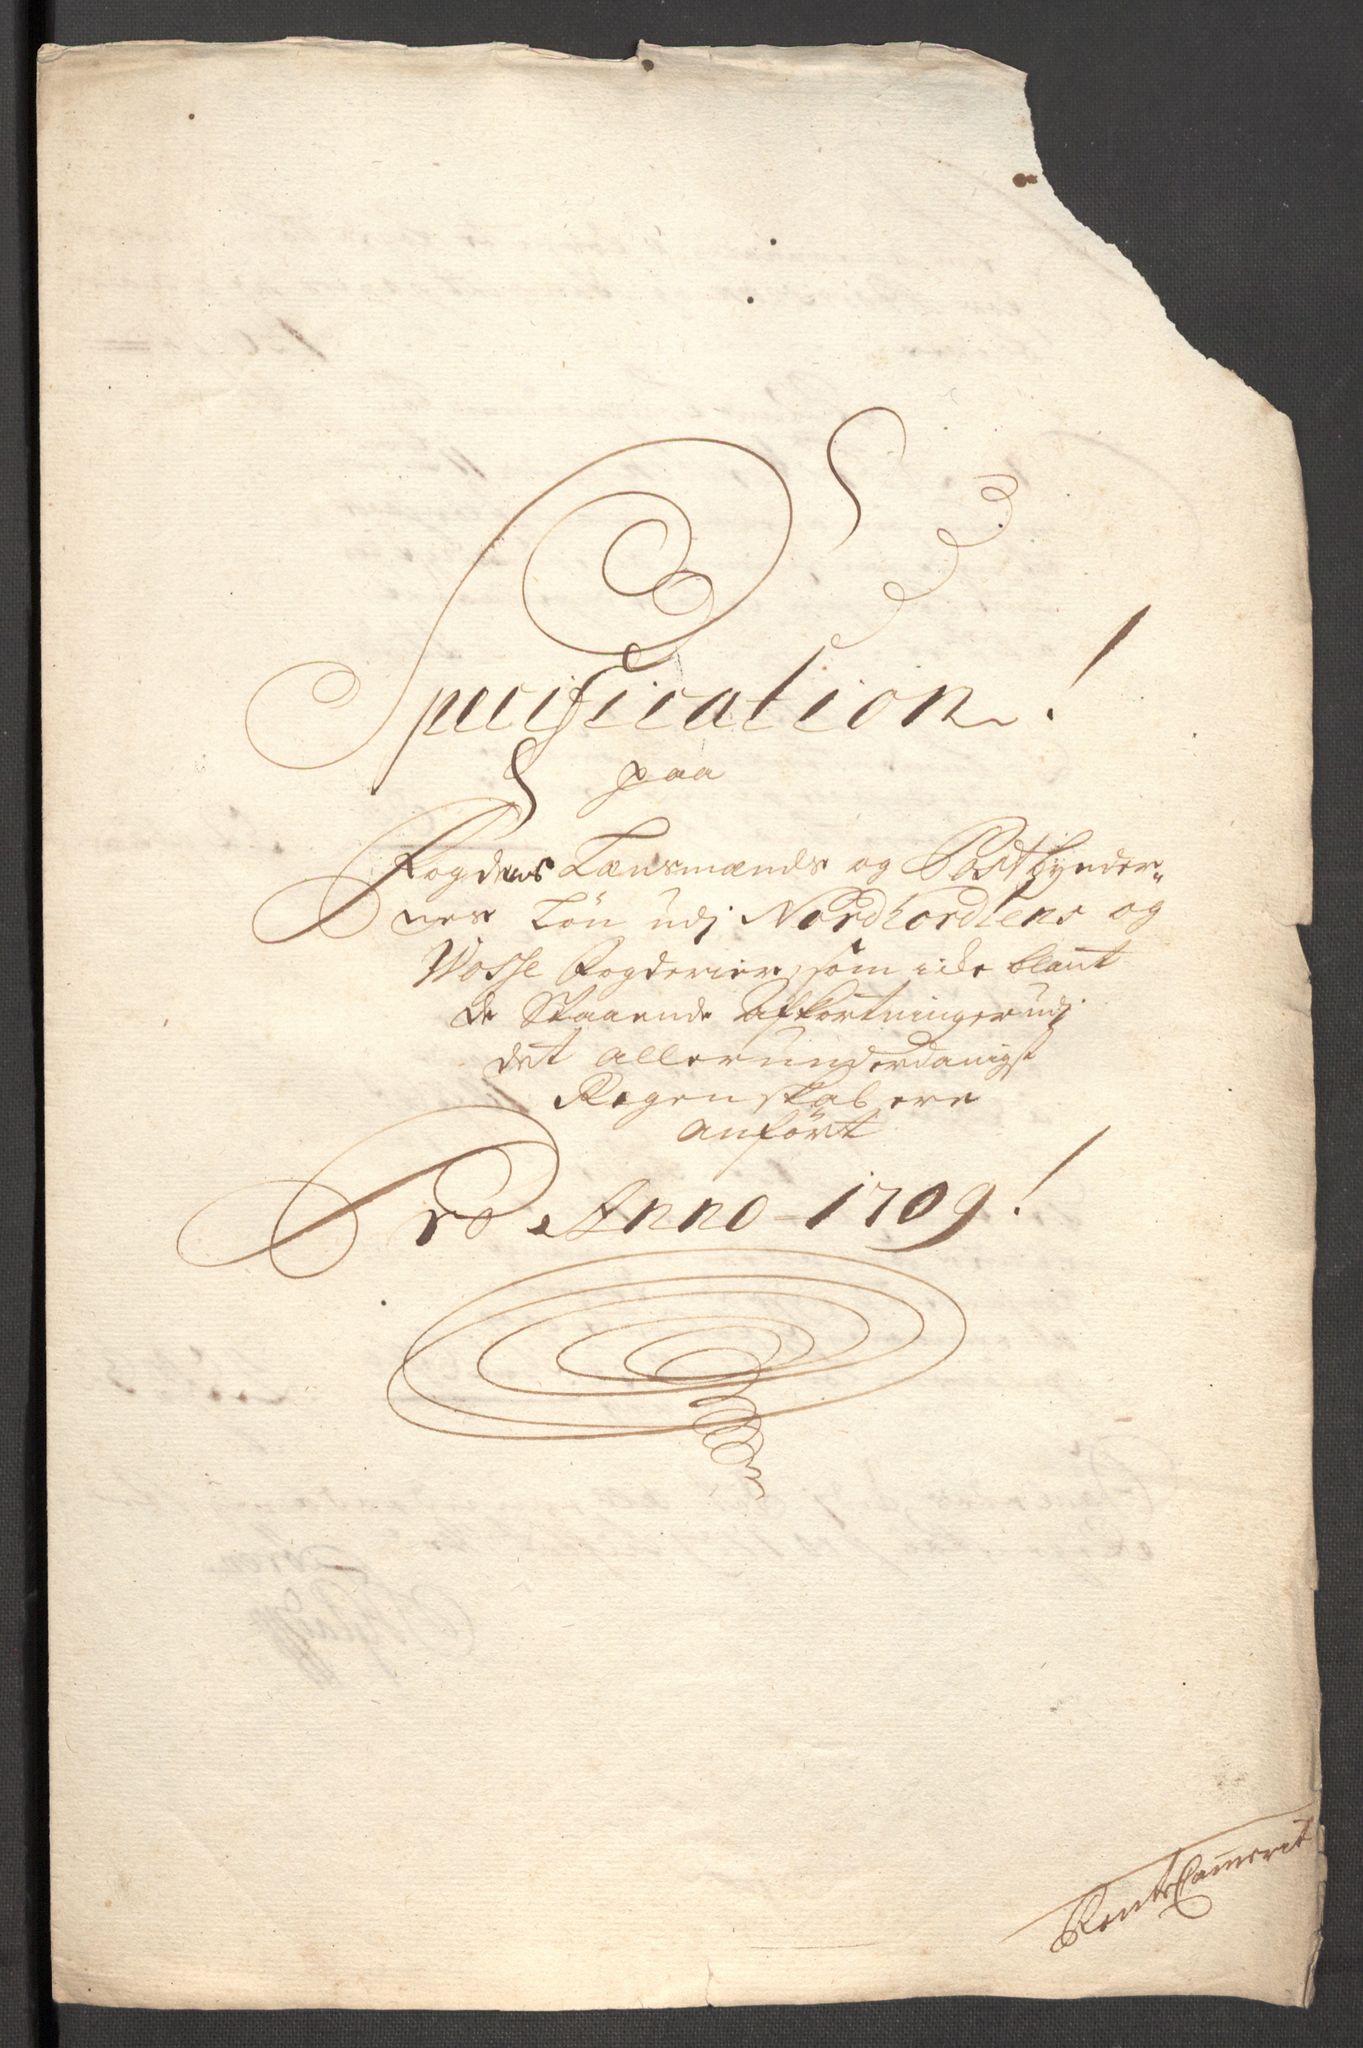 Specification!
paa
Fogdens Lænsmænds og Postbynder-
nes Løn udj Nordhordlens og
Wosse Fogderier, som iide blant
de Staaende Afkortninger udj
det allerunderdanigst
Regenskab ere
anført
Pro Anno 1709!
Rente Cammerit